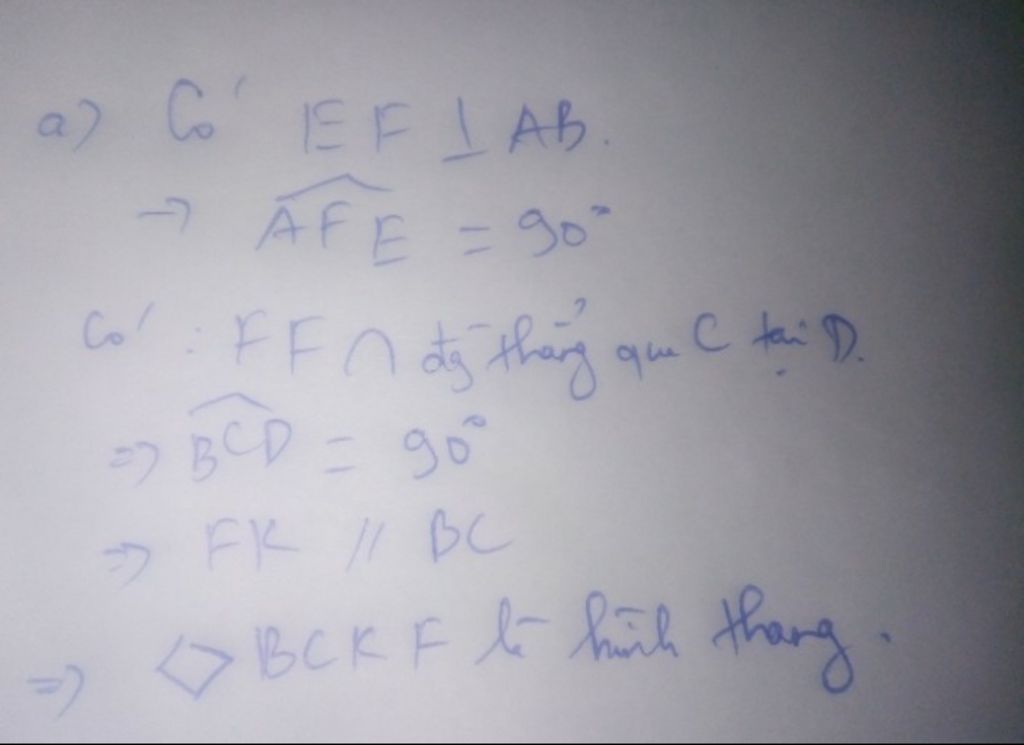 a) Có EF ⊥ AB.
→ \widehat{AFE} = 90°
Có : FF ∩ đg thẳng qua C tại D.
=> \widehat{BCD} = 90°
=> FK // BC
=> ◇ BCKF là hình thang.